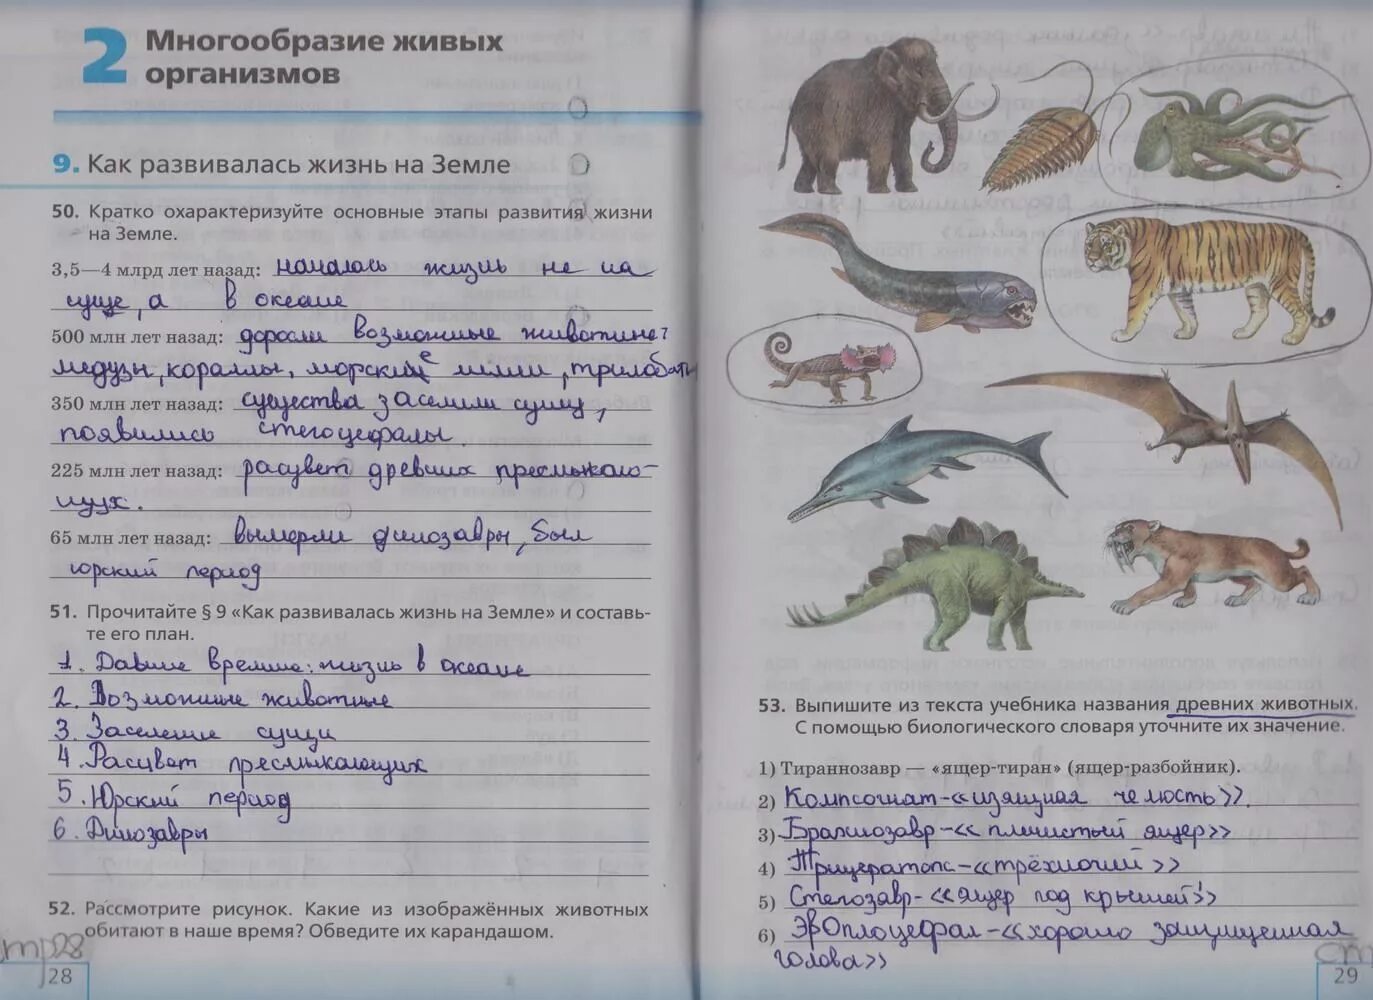 2 Многообразие живых
организмов
9. Как развивалась жизнь на Земле
50. Кратко охарактеризуйте основные этапы развития жизни
на Земле.
3,5—4 млрд лет назад: началась жизнь не на
суще, а в океане
500 млн лет назад: доросли возможные животные:
медузы, кораллы, морские лилии, трилобиты
350 млн лет назад: существа заселили сушу,
появились стегоцефалы.
225 млн лет назад: расцвет древних пресмыкаю-
щихх.
65 млн лет назад: вымерли динозавры, был
юрский период
51. Прочитайте § 9 «Как развивалась жизнь на Земле» и составь-
те его план.
1. Давние времена: жизнь в океане
2. Возможные животные
3. Заселение суши
4. Расцвет пресмыкающихх
5. Юрский период
6. Динозавры
52. Рассмотрите рисунок. Какие из изображённых животных
обитают в наше время? Обведите их карандашом.
стр28
28
53. Выпишите из текста учебника названия древних животных.
С помощью биологического словаря уточните их значение.
1) Тираннозавр — «ящер-тиран» (ящер-разбойник).
2) Компсогнат-«изящная челюсть».
3) Брахиозавр-«плечистый ящер»
4) Трицератопс-«трёхрогий»
5) Стегозавр-«ящер под крышей»
6) Эвоплоцефал-«хорошо защищённая
голова»
29